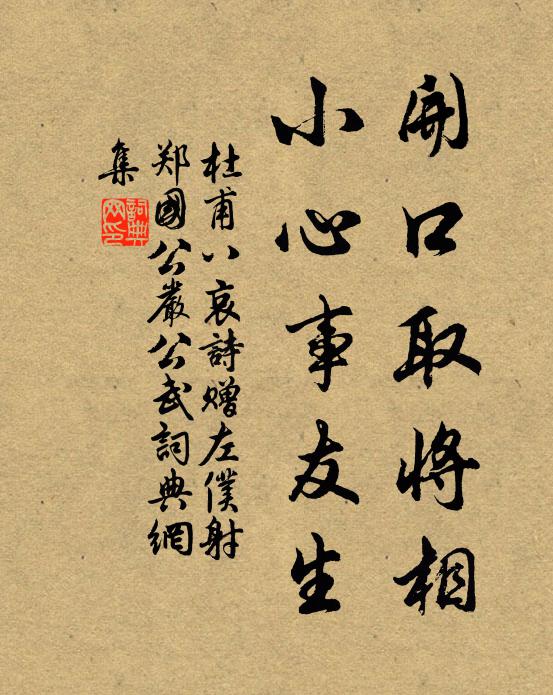 開口取將相
小心事友生
杜甫八哀詩贈左僕射
郑國公嚴公武詞典網
集
詞典
网印